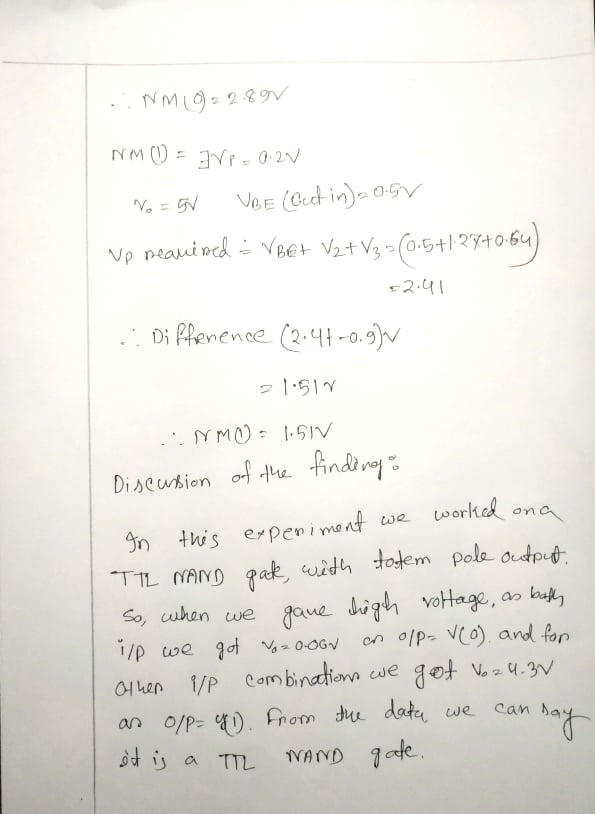 ∴ NM(0) = 2.89V
NM(1) = ∃VP = 0.2V
V₀ = 5V VBE (Cut in) = 0.5V
Vp required = VBE + V2 + V3 = (0.5+1.27+0.64)
= 2.41
∴ Difference (2.41-0.9)V
= 1.51V
∴ NM(1) = 1.51V
Discussion of the finding:
In this experiment we worked on a
TTL NAND gate, with totem pole output.
So, when we gave high voltage, as both
i/p we got V₀=0.06V as o/p = V(0). and for
other i/p combination we got V₀ = 4.3V
as O/P = V(1). From the data, we can say
it is a TTL NAND gate.